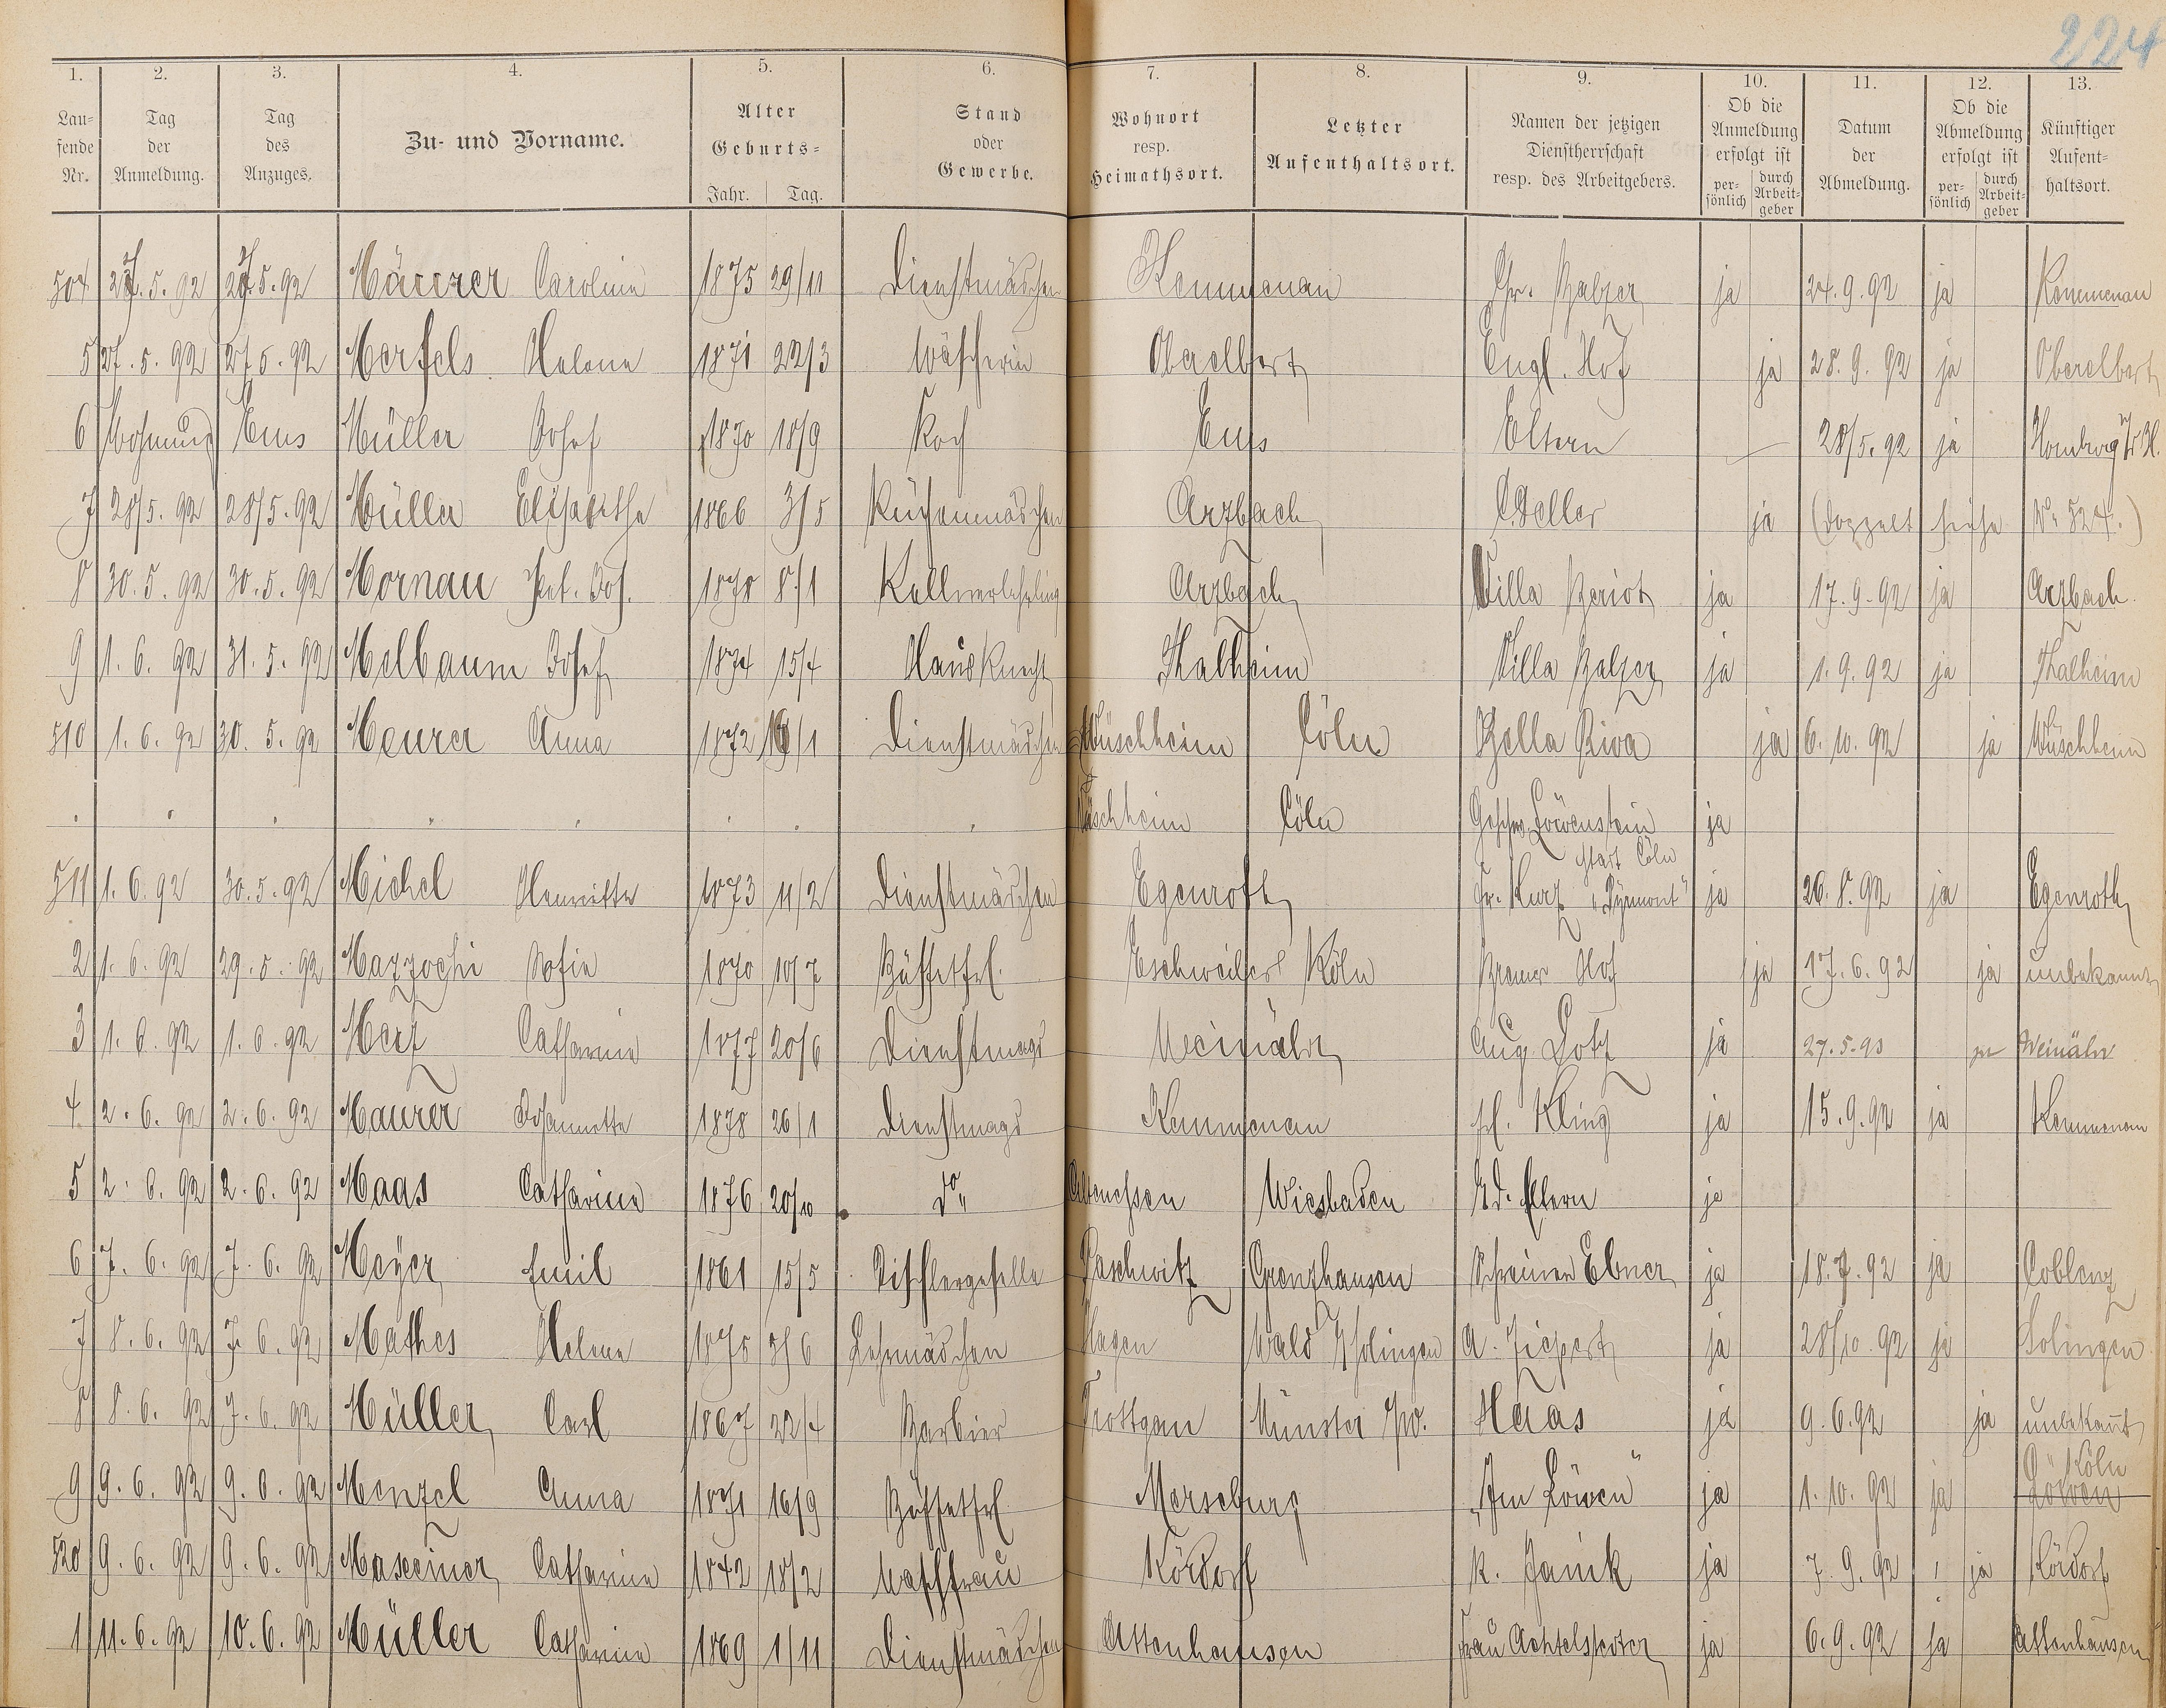 224
1. 2. 3. 4. 5. 6. 7. 8. 9. 10. 11. 12. 13.
Laufende Nr. Tag der Anmeldung. Tag des Anzuges. Zu- und Vorname. Alter Geburts- Jahr. Tag. Stand oder Gewerbe. Wohnort resp. Heimathsort. Letzter Aufenthaltsort. Namen der jetzigen Dienstherrschaft resp. des Arbeitgebers. Ob die Anmeldung erfolgt ist persönlich durch Arbeitgeber Datum der Abmeldung. Ob die Abmeldung erfolgt ist persönlich durch Arbeitgeber Künftiger Aufenthaltsort.
504 27.5.92 27.5.92 Mäurer Caroline 1875 29/11 Dienstmädchen Kemmenau Chr. Balzer ja 24.9.92 ja Kemmenau
5 27.5.92 27.5.92 Merfels Helene 1871 22/3 Wäscherin Oberelbert Engl. Hof ja 28.9.92 ja Oberelbert
6 Wohnung Ems Müller Josef 1870 18/9 Koch Ems Eltern 28/5.92 ja Homburg
7 28/5.92 28/5.92 Müller Elisabetha 1866 3/5 Küchenmädchen Arzbach ja (doppelt siehe No 524.)
8 30.5.92 30.5.92 Mornau Pet. Jos. 1878 8/1 Kellnerlehrling Arzbach Villa Beriot ja 17.9.92 ja Arzbach
9 1.6.92 31.5.92 Melbaum Josef 1874 15/4 Hausknecht Thalheim Villa Balzer ja 1.9.92 ja Thalheim
510 1.6.92 30.5.92 Meurer Anna 1872 Dienstmädchen Wüschheim Cöln Bella Riva ja 6.10.92 ja Wüschheim
" " " " " " " " Wüschheim Cöln Geschw. Löwenstein ja
511 1.6.92 30.5.92 Michel Henriette 1873 11/2 Dienstmädchen Egenroth Fr. Kurz Stadt Cöln "Pyrmont" ja 26.8.92 ja Egenroth
2 1.6.92 29.5.92 Mazzochi Sofie 1870 10/7 Büffetfrl. Eschweiler Köln Bremer Hof ja 17.6.92 ja unbekannt
3 1.6.92 1.6.92 Merz Catharine 1877 20/6 Dienstmagd Weinähr Aug. Lotz ja 27.5.93 Weinähr
4 2.6.92 2.6.92 Maurer Johannette 1878 26/1 Dienstmagd Kemmenau Kling ja 15.9.92 ja Kemmenau
5 2.6.92 2.6.92 Maas Catharine 1876 20/10 do Altenessen Wiesbaden ja
6 7.6.92 7.6.92 Meyer Emil 1861 15/5 Tischlergeselle Paschwitz Grenzhausen Schreiner Ebner ja 18.7.92 ja Coblenz
7 8.6.92 7.6.92 Mathes Helene 1875 Lehrmädchen Hagen Wald b/Solingen A. ja 28/10.92 ja Solingen
8 8.6.92 7.6.92 Müller Carl 1867 22/4 Barbier Trottgau Münster Haas ja 9.6.92 ja unbekannt
9 9.6.92 9.6.92 Menzel Anna 1871 16/9 Büffetfrl. Merseburg "Im Löwen" ja 1.10.92 ja Köln
520 9.6.92 9.6.92 Catharine 1842 18/2 Waschfrau Kördorf K. Janik ja 7.9.92 ja Kördorf
1 11.6.92 10.6.92 Müller Catharine 1869 1/11 Dienstmädchen Attenhausen Frau Achtelstetter ja 6.9.92 ja Attenhausen